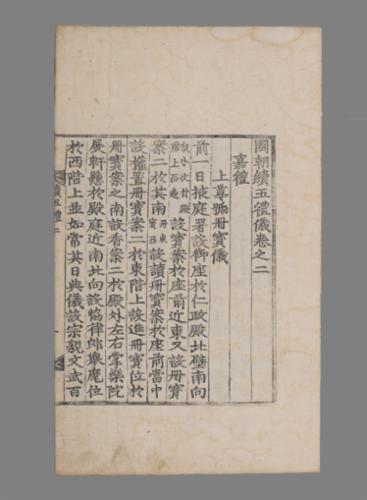 國朝續五禮儀卷之二
嘉禮
上尊號冊寶儀
前一日掖庭署設御座於仁政殿北壁南向
設寶案於座前近東又設冊寶
案二於其南設讀冊寶案於座前當中
設權置冊寶案二於東階上設進冊寶位於
冊寶案之南設香案二於殿外左右掌樂院
展軒懸於殿庭近南北向設協律郎擧麾位
於西階上並如常其日典儀設宗親文武百